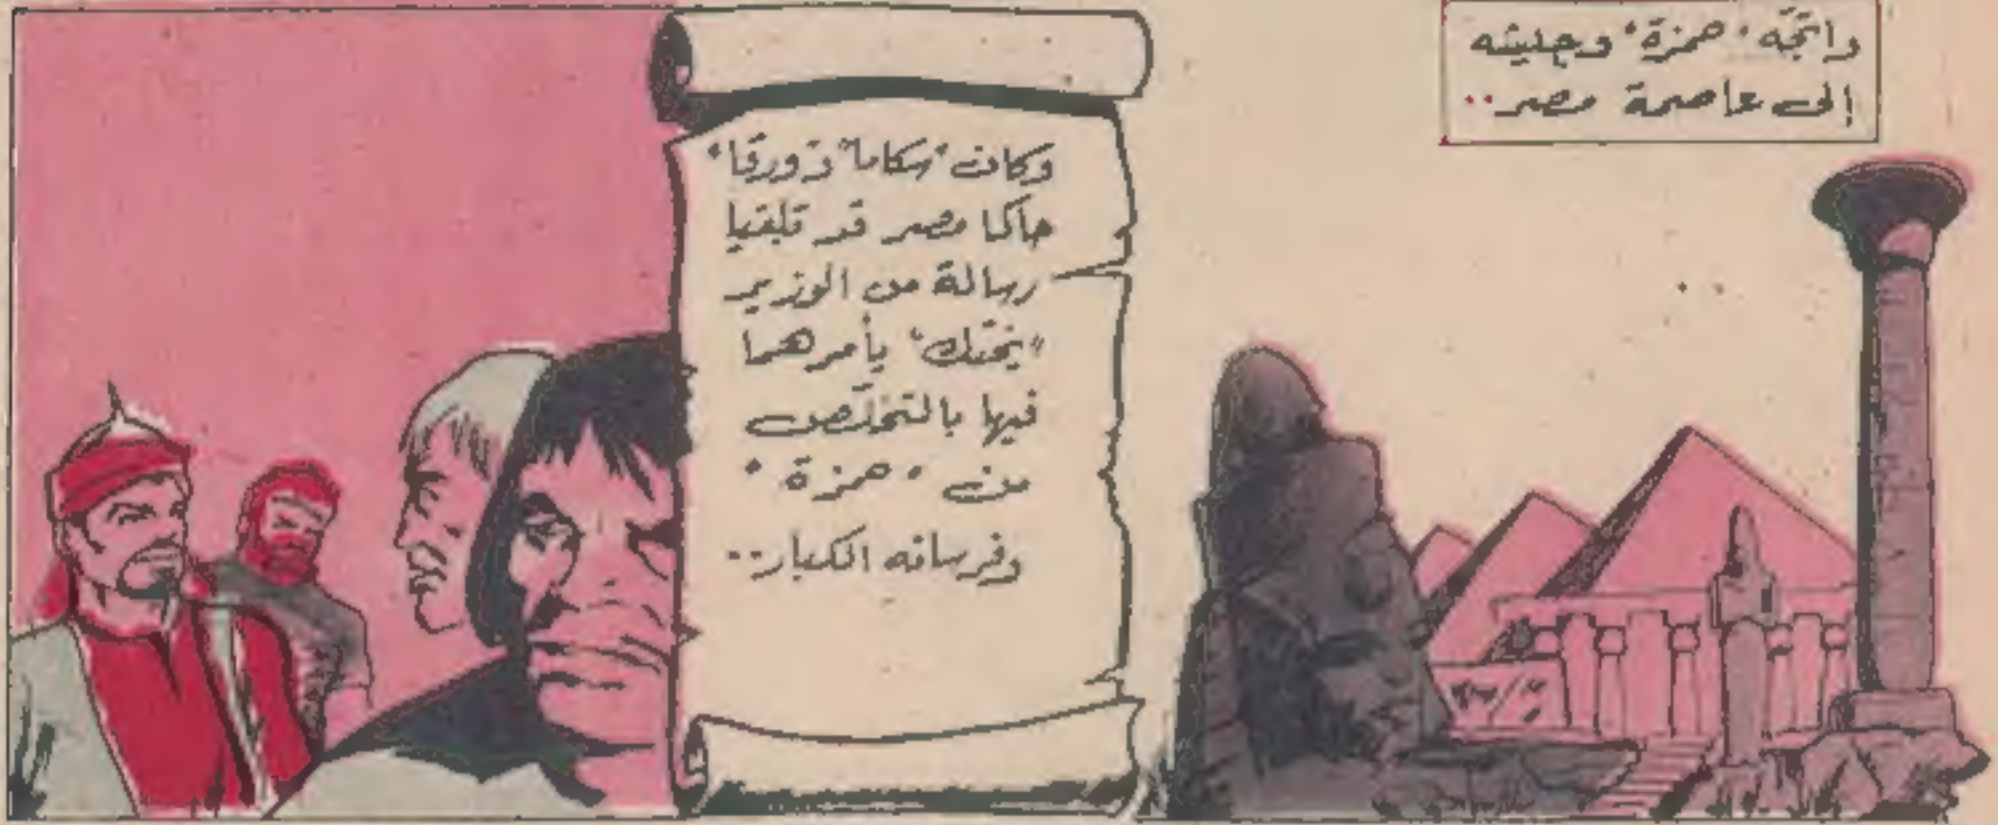 واتجّه "حمزة" وجيشه
إلى عاصمة مصر..
وكان "سكاما" و"ورقا"
حاكما مصر قد تلقيا
رسالة من الوزير
"بختك" يأمرهما
فيها بالتخلّص
من "حمزة"
وفرسانه الكبار..